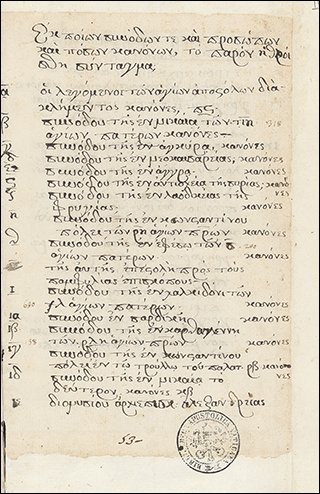 Ἐκ ποίων συνόδων τε καὶ προσώπων
καὶ πόσων κανόνων, τὸ παρὸν ἠθροί
σθη σύνταγμα
οἱ λεγόμενοι τῶν ἁγίων ἀποστόλων διὰ
κλήμεντος κανόνες, πε
συνόδου τῆς ἐν νικαία τῶν τιη 318
ἁγίων πατέρων κανόνες
συνόδου τῆς ἐν ἀγκύρα, κανόνες
συνόδου τῆς ἐν νεοκαισαρείας, κανόνες
συνόδου τῆς ἐν γάγγρα κανόνες
συνόδου τῆς ἐν ἀντιοχεία τῆς συρίας κανό
συνόδου τῆς ἐν λαοδικεία τῆς νες
φρυγίας κανόνες
συνόδου τῆς ἐν κωνσταντίνου
πόλει τῶν ρν ἁγίων πρων κανόνες
συνόδου τῆς ἐν ἐφέσω τῶν σ 200
ἁγίων πατέρων κανόνες
τῆς αὐτῆς ἐπιστολὴ πρὸς τοὺς
παμφυλίας ἐπισκόπους
συνόδου τῆς ἐν χαλκηδόνι τῶν
χλ ἁγίων πατέρων κανόνες
συνόδου ἐν σαρδικῆ κανόνες
συνόδου τῆς ἐν κανόνες
τῶν ἁγίων πρων κανόνες
συνόδου τῆς ἐν κωνσταντίνου
πόλει ἐν τῶ τρούλλω τοῦ παλατ ρβ κανό
συνόδου τῆς ἐν νικαία τὸ νες
δεύτερον κανόνες κβ
διονυσίου ἀλεξανδρείας
53-